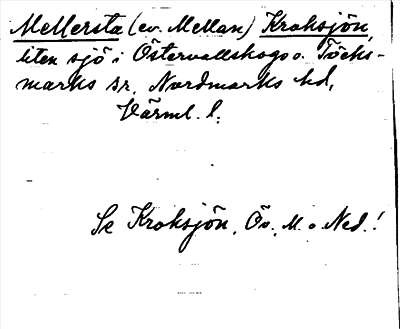 Mellersta (ev. Mellan) Kroksjön,
liten sjö i Östervallskogs o. Töcks-
marks sr, Nordmarks hd,
Värml. l.
Se Kroksjön, Öv., M. o Ned.!